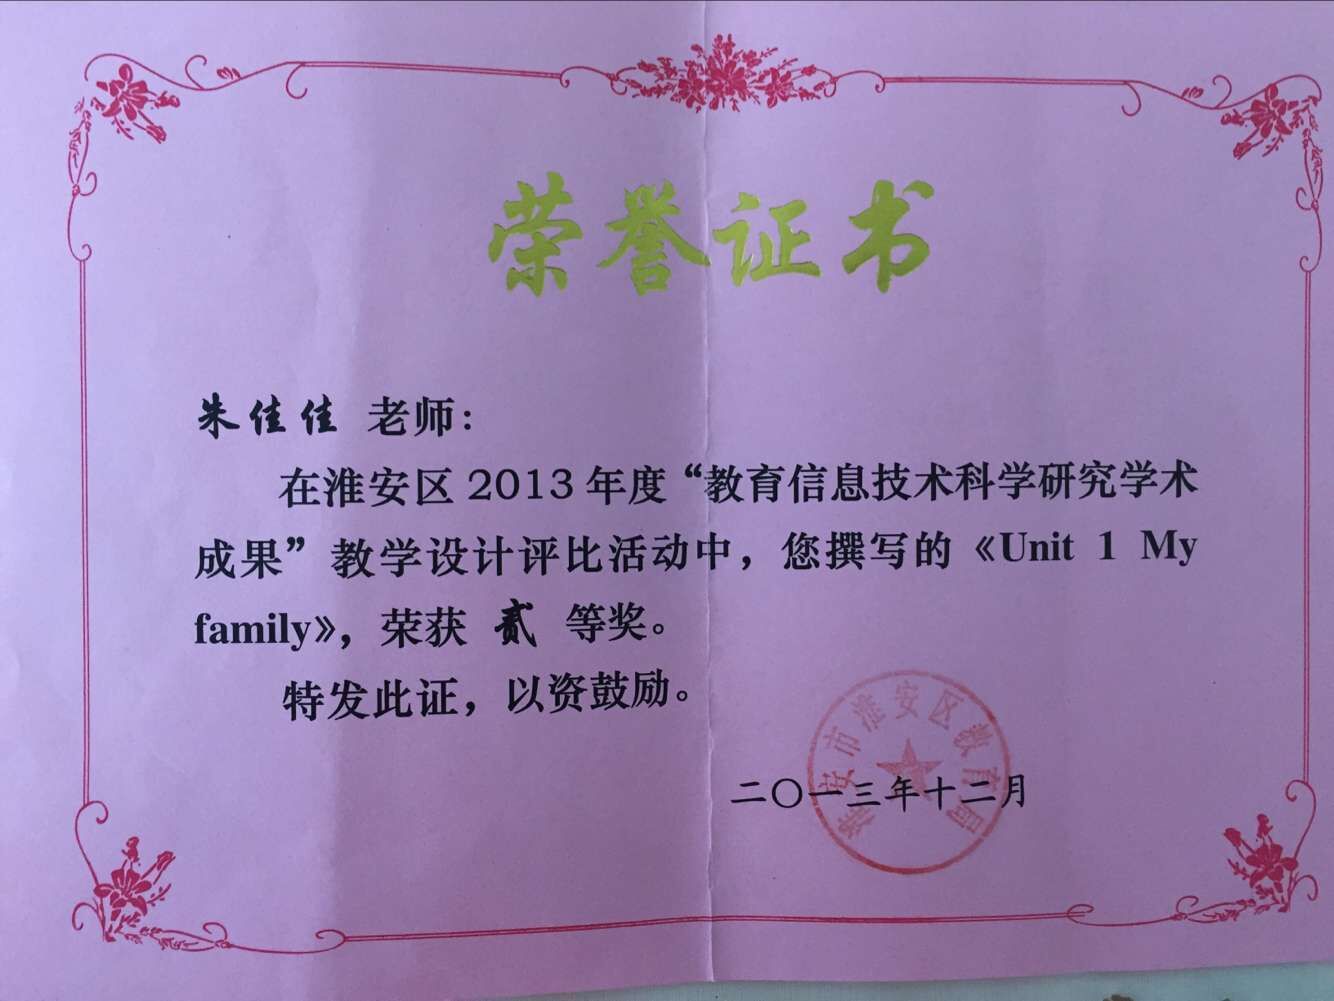 荣誉证书
朱佳佳 老师：
在淮安区2013年度“教育信息技术科学研究学术
成果”教学设计评比活动中，您撰写的《Unit 1 My
family》，荣获 贰 等奖。
特发此证，以资鼓励。
淮安市淮安区教育局
二〇一三年十二月